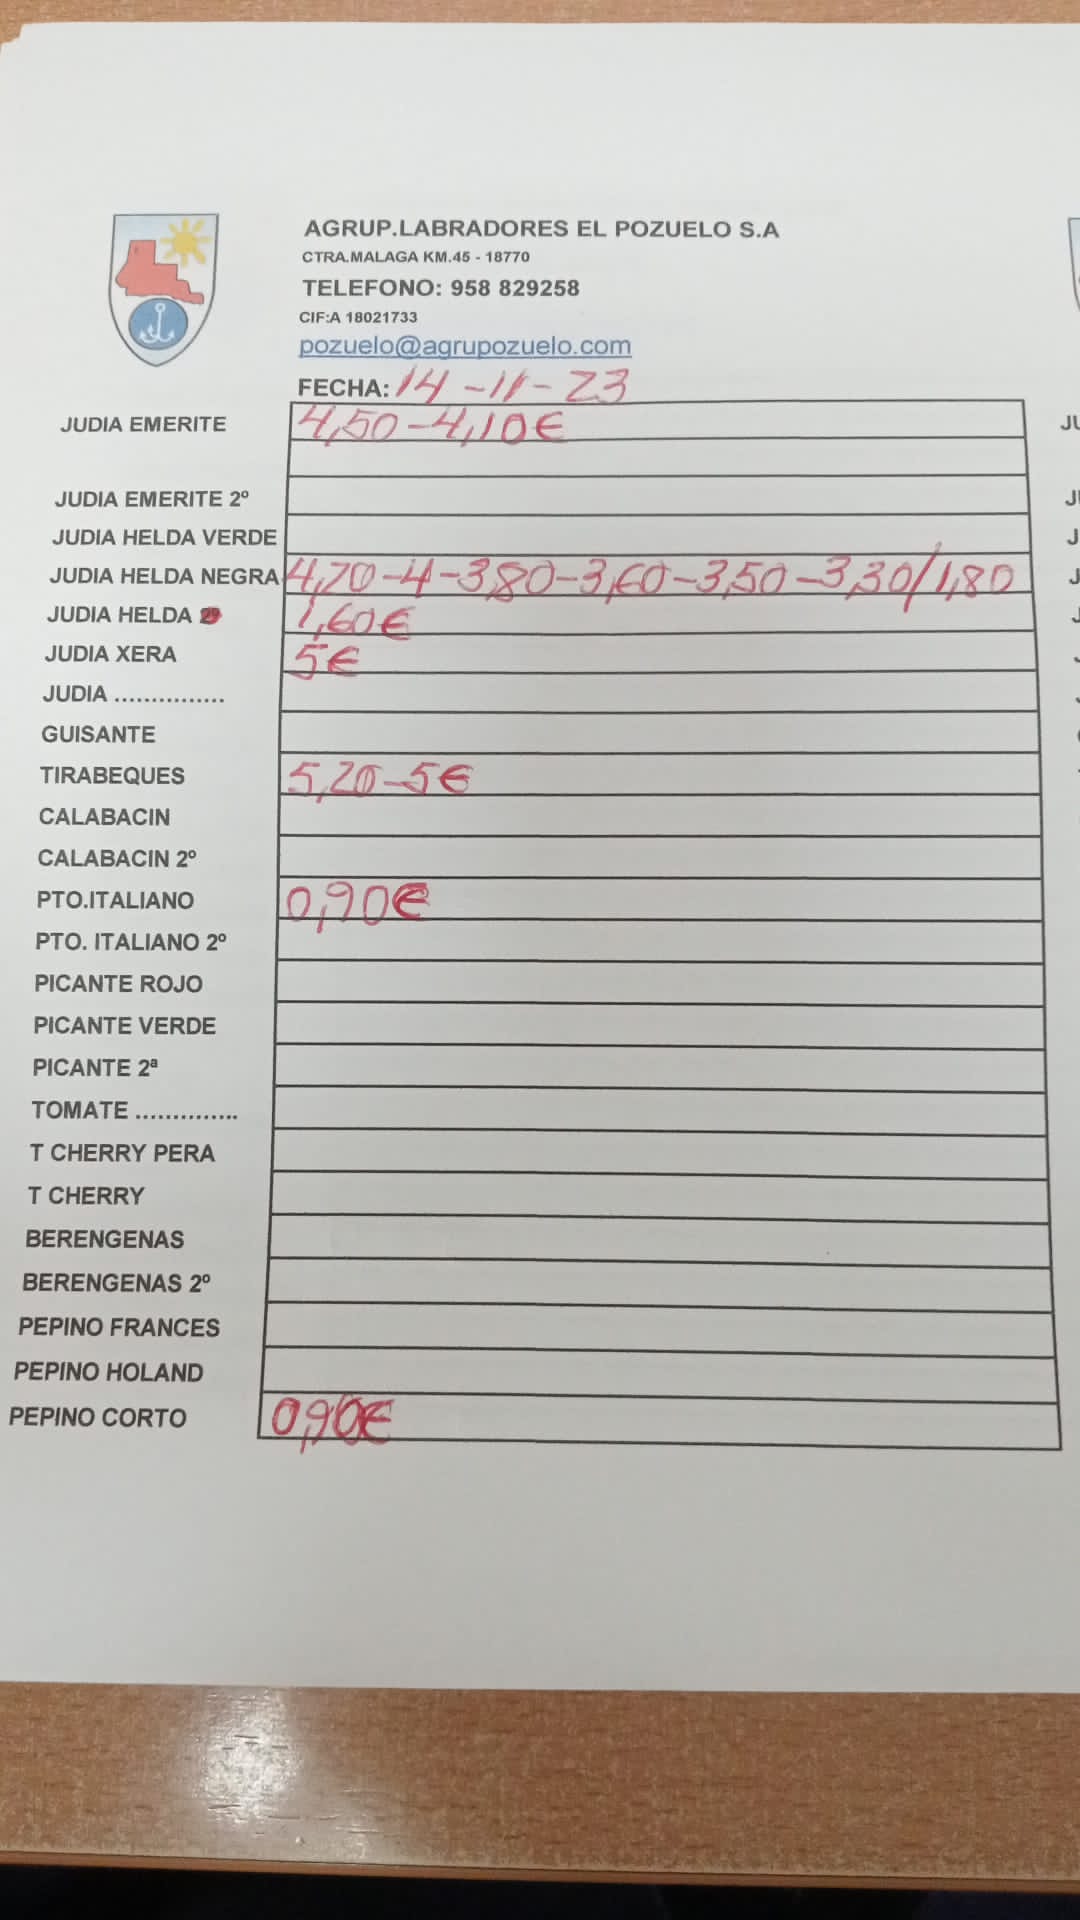 AGRUP.LABRADORES EL POZUELO S.A
CTRA.MALAGA KM.45 - 18770
TELEFONO: 958 829258
CIF:A 18021733
pozuelo@agrupozuelo.com
FECHA: 14-11-23
JUDIA EMERITE 4,50-4,10€
JUDIA EMERITE 2º
JUDIA HELDA VERDE
JUDIA HELDA NEGRA 4,20-4-3,80-3,60-3,50-3,30/1,80
JUDIA HELDA 1,60€
JUDIA XERA 5€
JUDIA ...............
GUISANTE
TIRABEQUES 5,20-5€
CALABACIN
CALABACIN 2º
PTO.ITALIANO 0,90€
PTO. ITALIANO 2º
PICANTE ROJO
PICANTE VERDE
PICANTE 2ª
TOMATE ..............
T CHERRY PERA
T CHERRY
BERENGENAS
BERENGENAS 2º
PEPINO FRANCES
PEPINO HOLAND
PEPINO CORTO 0,90€